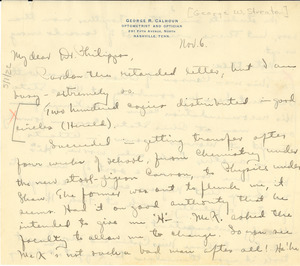 [George W. Streator]
GEORGE R. CALHOUN
OPTOMETRIST AND OPTICIAN
FIFTH AVENUE, NORTH
NASHVILLE, TENN.
Nov. 6.
My dear Dr. Phillips,
Pardon this retarded letter, but I am
busy - extremely so.
Two hundred copies distributed in good
circles (Herald).
X Succeeded in getting transfer after
four weeks of school, from Chemistry under
the new stool-pigeon Cannon, to Physics under
Shaw. The former was out to flunk me, it
seems. Had it on good authority that he
intended to give me "H"- McX. asked the
faculty to allow me to change. So you see
McX is not such a bad man after all! He